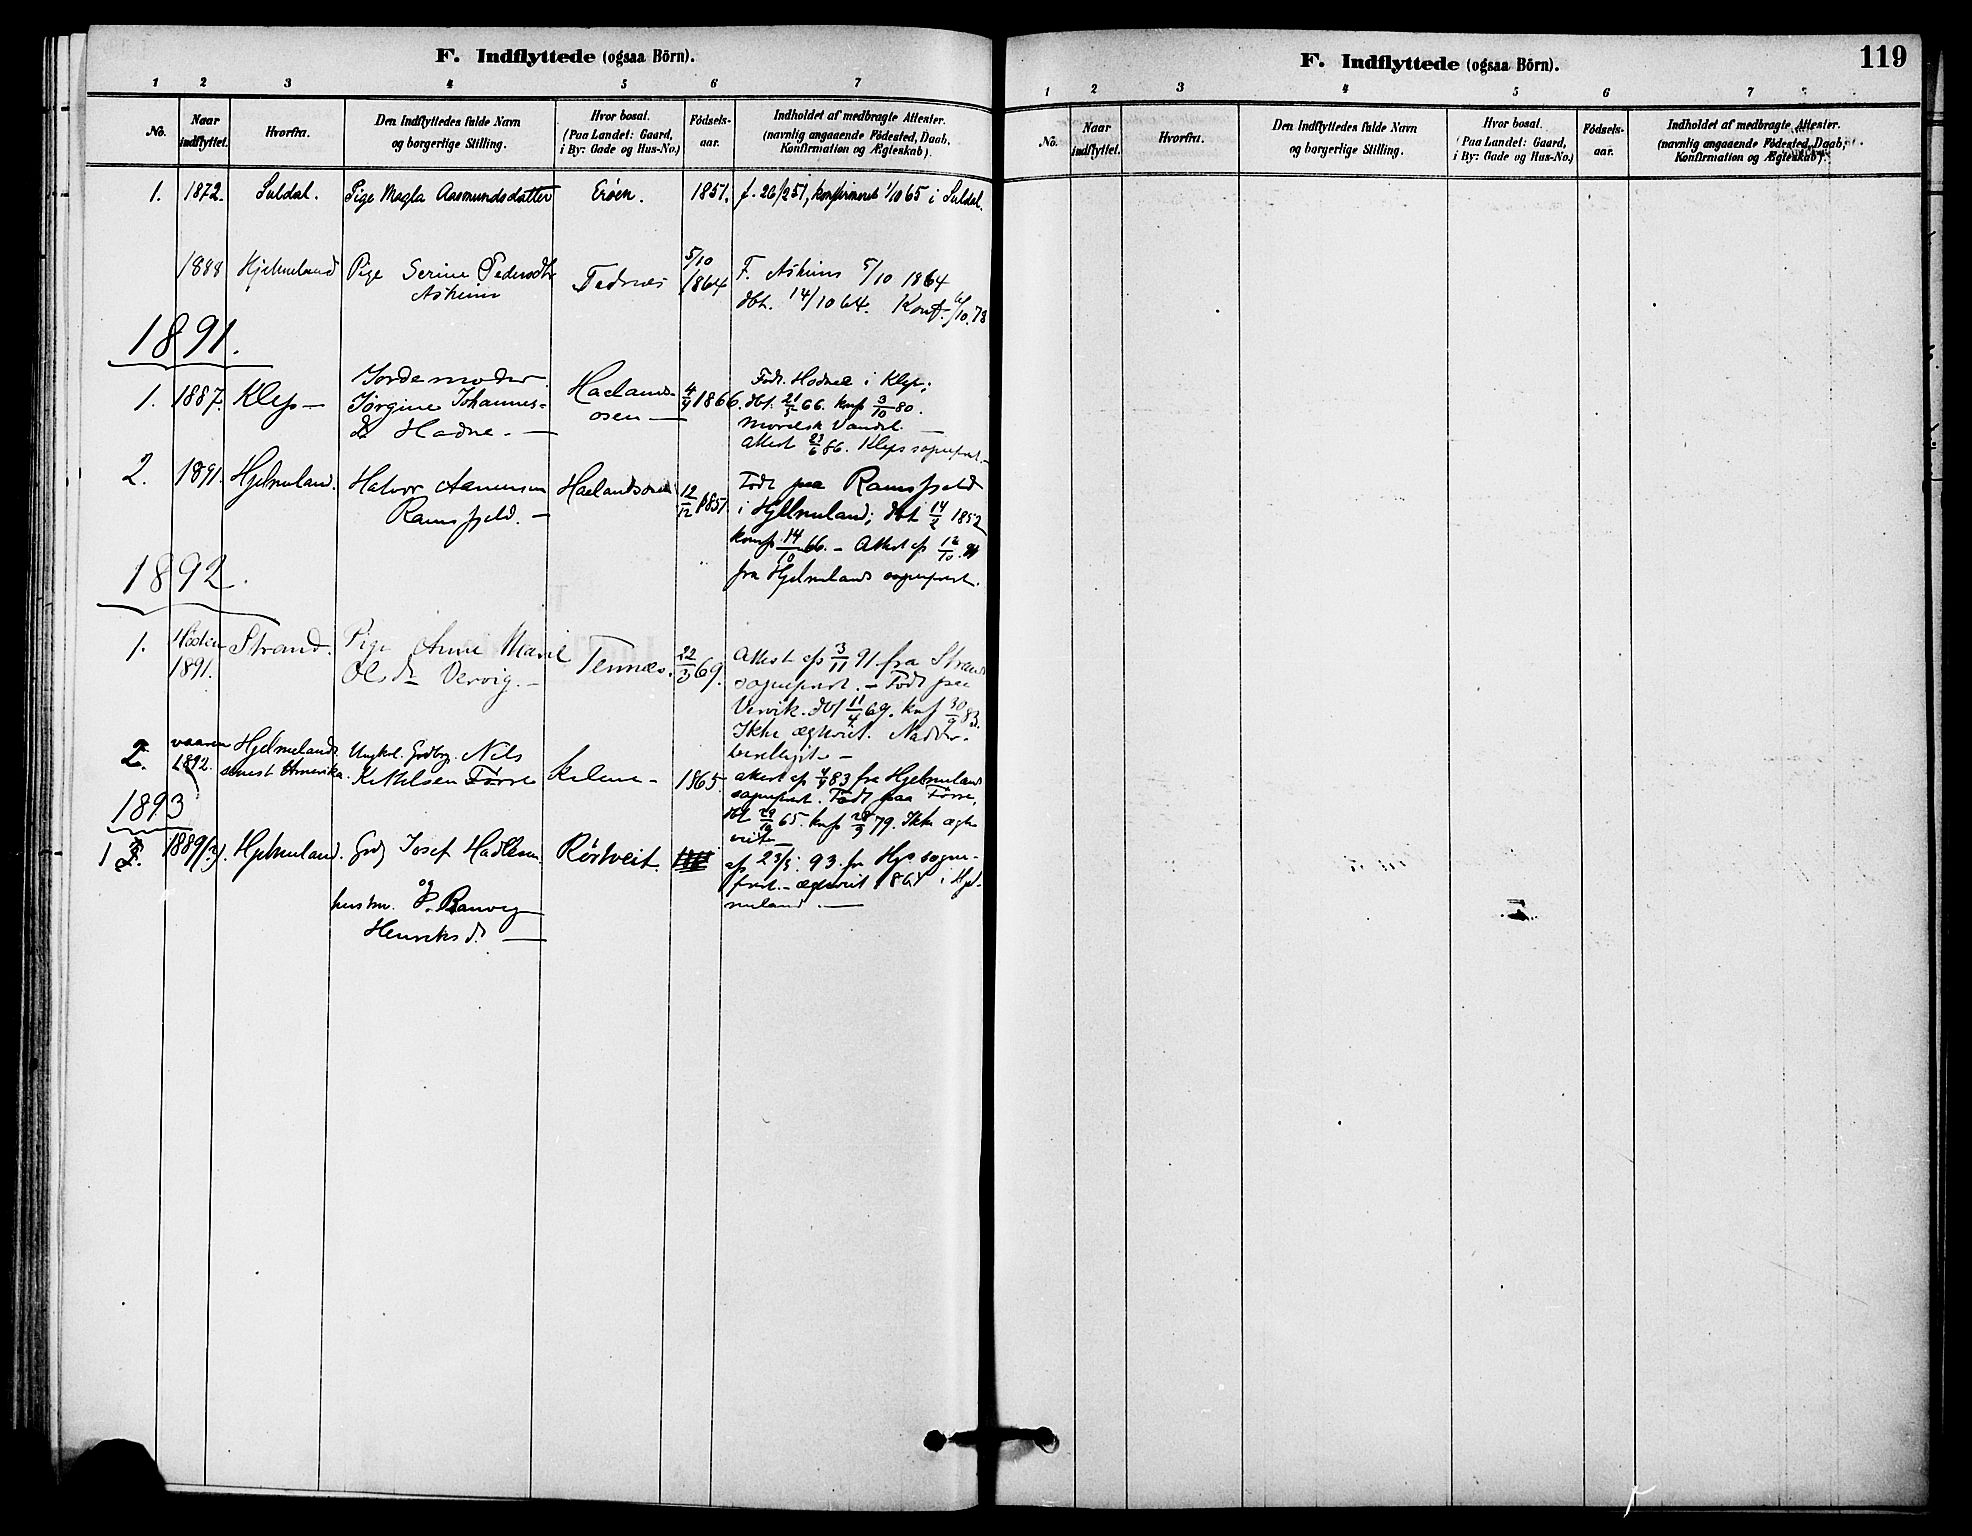 F. Indflyttede (ogsaa Börn).
1 2 3 4 5 6 7
No. Naar indflyttet. Hvorfra. Den Indflyttedes fulde Navn og borgerlige Stilling. Hvor bosat. (Paa Landet: Gaard, i By: Gade og Hus-No.) Födsels-aar. Indholdet af medbragte Attester. (navnlig angaaende Födested, Daab, Konfirmation og Ægteskab).
1. 1872. Suldal. Pige Magla Aasmundsdatter Erøen. 1851. f. 26/2 51, konfirmeret 1/10 65 i Suldal.
1888 Hjelmeland Pige Serine Pedersdtr Tednes 5/10 1864 F. Askeim 5/10 1864
Askeim dbt. 14/10 64. Konf. 6/10.78
1891.
1. 1887. Klep – Jordemoder Haelands- 4/4 1866. Født Hodne i Klep;
Jørgine Johannes- osen — dbt. 21/5 66. konf 3/10 80.
dr Hodne. — moralsk Vandel. —
attest 23/6 86. Kleps sogneprest. –
2. 1891. Hjelmeland. Halvor Aanensen Haelandsosen 12/12 1851 Født paa Ramsfjeld
Ramsfjeld. – i Hjelmeland; dbt 14/2 1852
konf 14/10 66. – Attest af 12/10. 91
fra Hjelmelands sogneprest.
1892.
1. Høsten 1891. Strand. Pige Anne Marie Tennes. 22/3 69. Attest af 3/11 91 fra Strands
Olsdr Vervig. – sogneprest. – Født paa
Vervik. dbt 11/4 69. knf 30/9 83.
Ikke ægteviet. Nadver-
berettiget –
2. vaaren 1892. Hjelmeland senest Amerika. Ungkrl. Nils 1865 attest af 4/4 83 fra Hjelmelands
Kithilsen Førre sogneprest. Født paa Førre,
dbt 29/10 65. knf 28/9 79. Ikke ægte-
viet –
1893
1 1889(?). Hjelmeland. Grdb Josef Hadlesen Rørtveit. af 23/3. 93. fr Hjs. sogne-
og prest. – ægteviet 1864 i Hjel-
hustru P. Ranveg meland. —
Henriksd. —
F. Indflyttede (ogsaa Börn).
119
1 2 3 4 5 6 7
No. Naar indflyttet. Hvorfra. Den Indflyttedes fulde Navn og borgerlige Stilling. Hvor bosat. (Paa Landet: Gaard, i By: Gade og Hus-No.) Födsels-aar. Indholdet af medbragte Attester. (navnlig angaaende Födested, Daab, Konfirmation og Ægteskab).